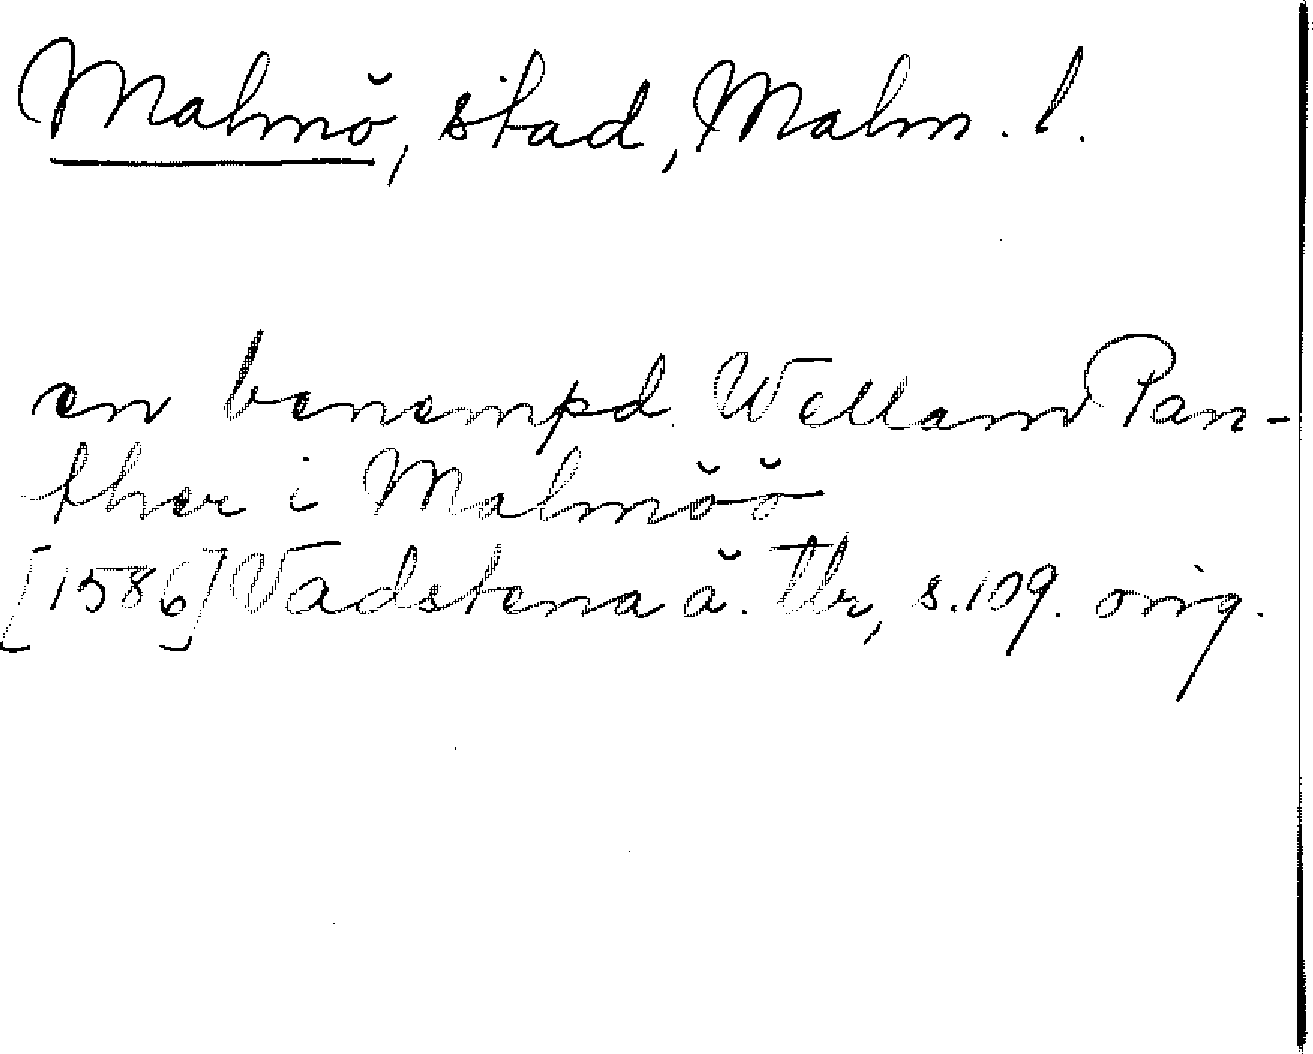 Malmö, stad, Malm. l.
en benempd. Wellam Pan-
ther i Malmöö
[1586] Vadstena ä. Tbr, s. 109. orig.